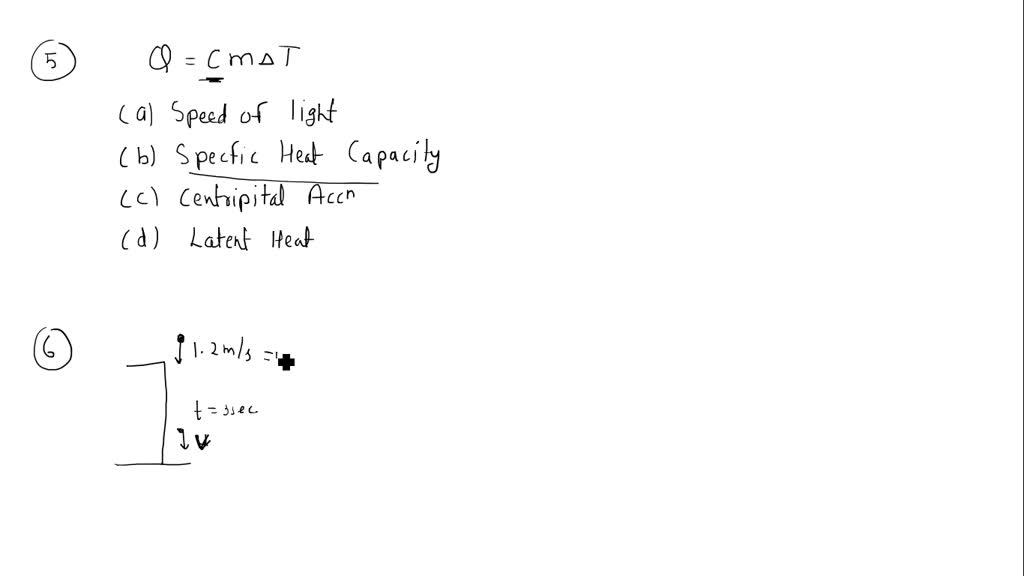 5 Q = C m Δ T
(a) Speed of light
(b) Specfic Heat Capacity
(c) Centripital Accn
(d) Latent Heat
6 1.2 m/s =
t = 3sec
V